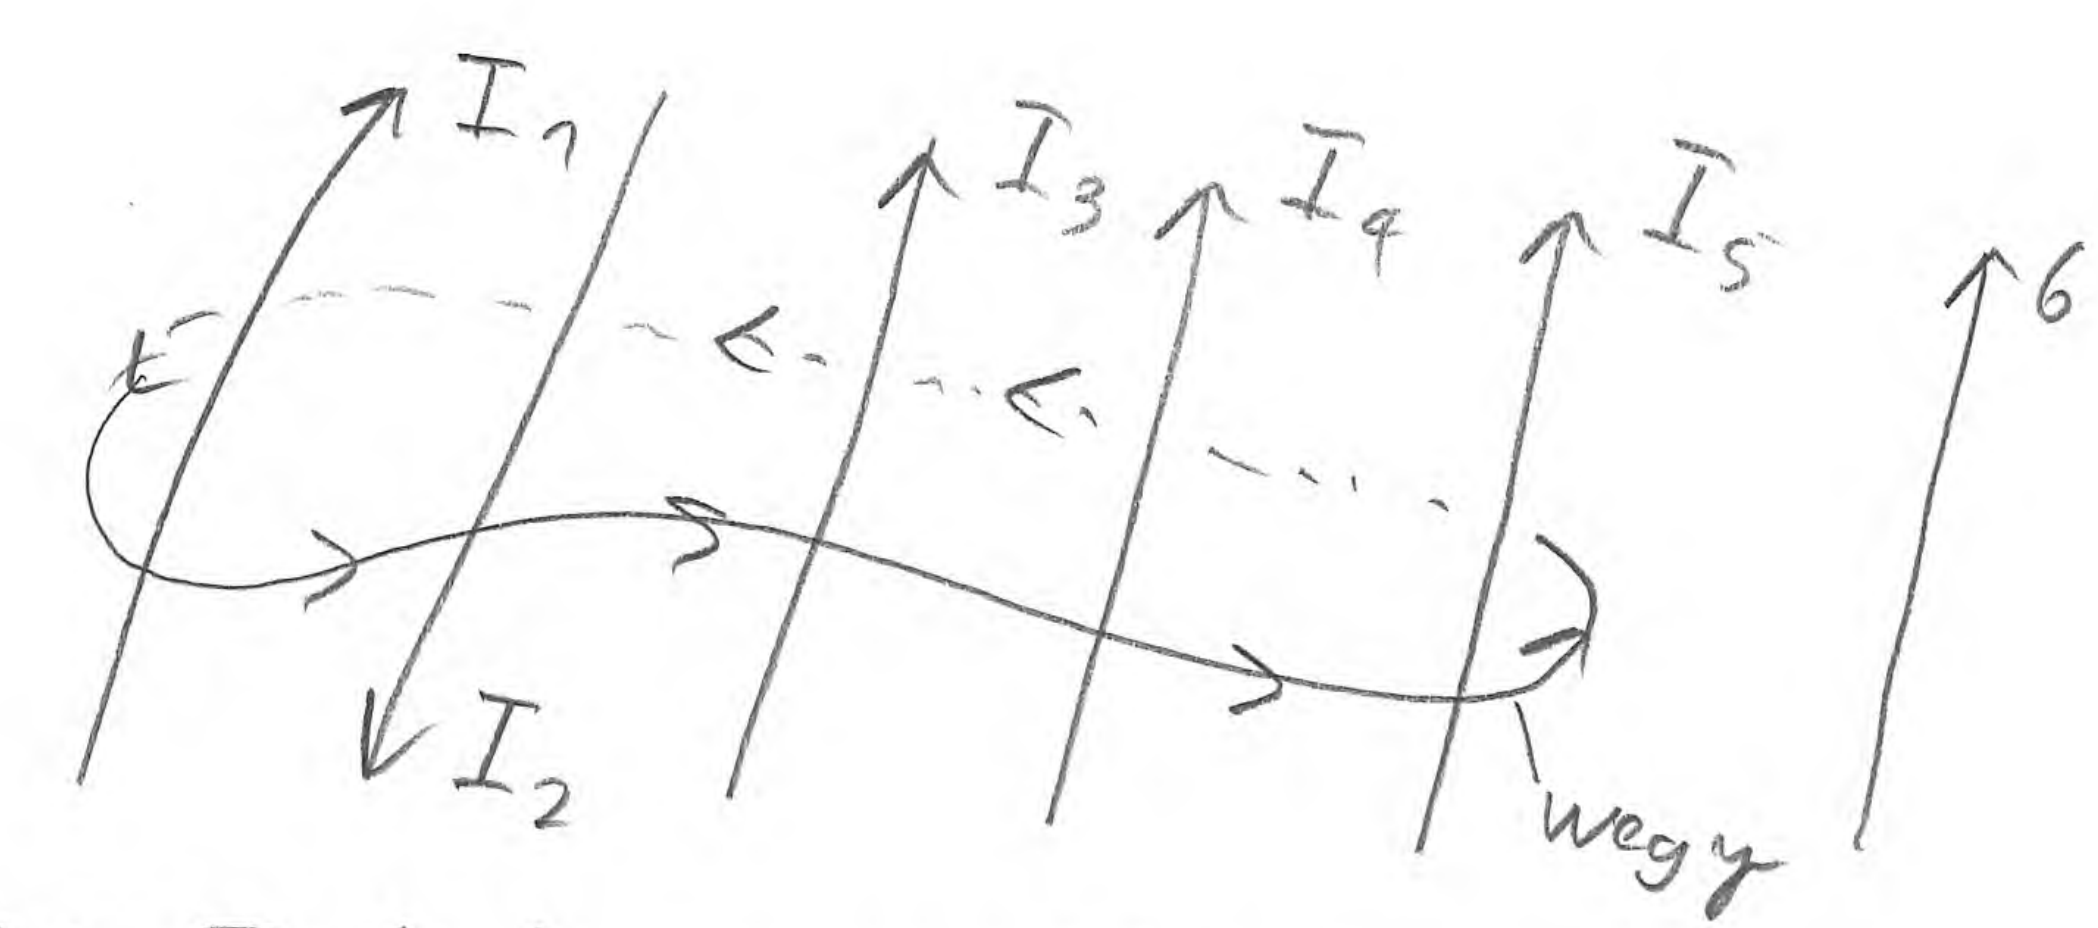 I₁
I₃
I₄
I₅
6
I₂
Weg γ